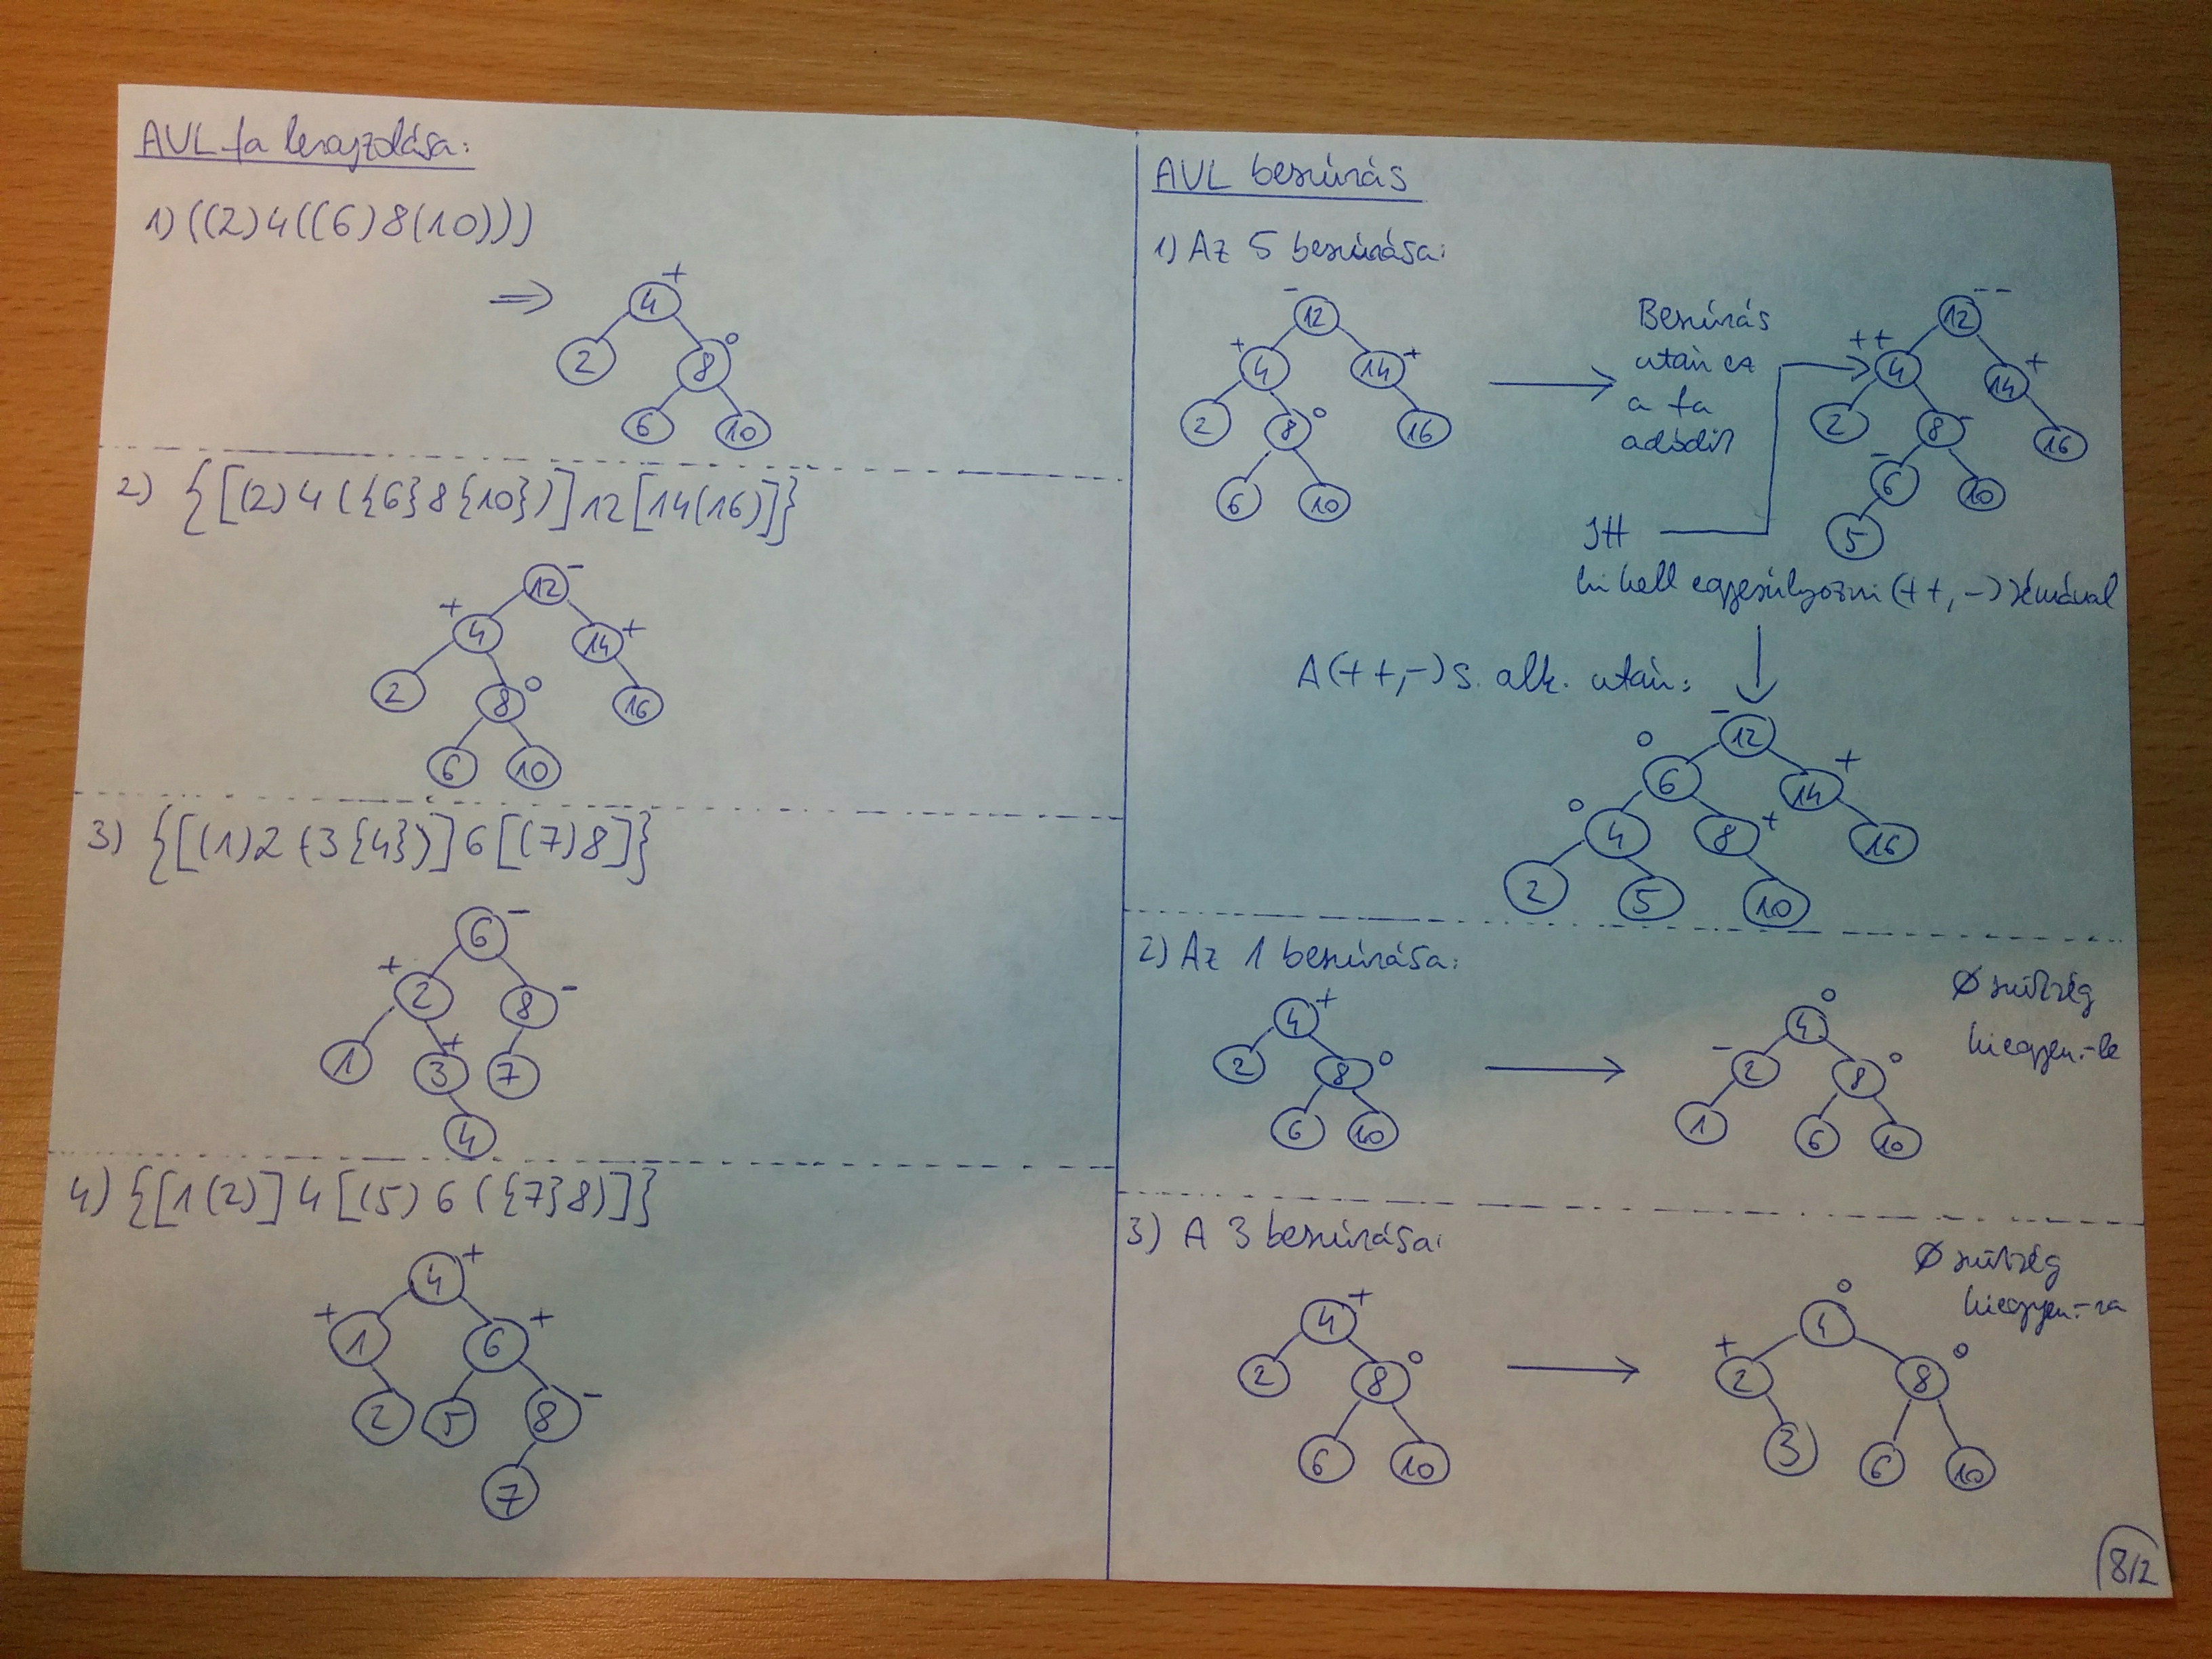 AVL fa lerajzolása:
1) ((2)4((6)8(10)))
⇒
4 +
2 8 ○
6 10
2) {[(2)4({6}8{10})]12[14(16)]}
12 -
+ 4 14 +
2 8 ○ 16
6 10
3) {[(1)2(3{4})]6[(7)8]}
6 -
+ 2 8 -
1 3 + 7
4
4) {[1(2)]4[(5)6({7}8)]}
4 +
+ 1 6 +
2 5 8 -
7
AVL beszúrás
1) Az 5 beszúrása:
- 12
+ 4 14 +
2 8 ○ 16
6 10
Beszúrás
után ez
a fa
adódik
12 --
++ 4 14 +
2 8 - 16
- 6 10
5
JH
ki kell egyensúlyozni (++,-) sémával
A (++,-) s. alk. után:
- 12
○ 6 14 +
○ 4 8 + 16
2 5 10
2) Az 1 beszúrása:
4 +
2 8 ○
6 10
4 ○
- 2 8 ○
1 6 10
Ø szükség
kiegyen.-le
3) A 3 beszúrása:
4 +
2 8 ○
6 10
4 ○
+ 2 8 ○
3 6 10
Ø szükség
kiegyen.-ra
8/2